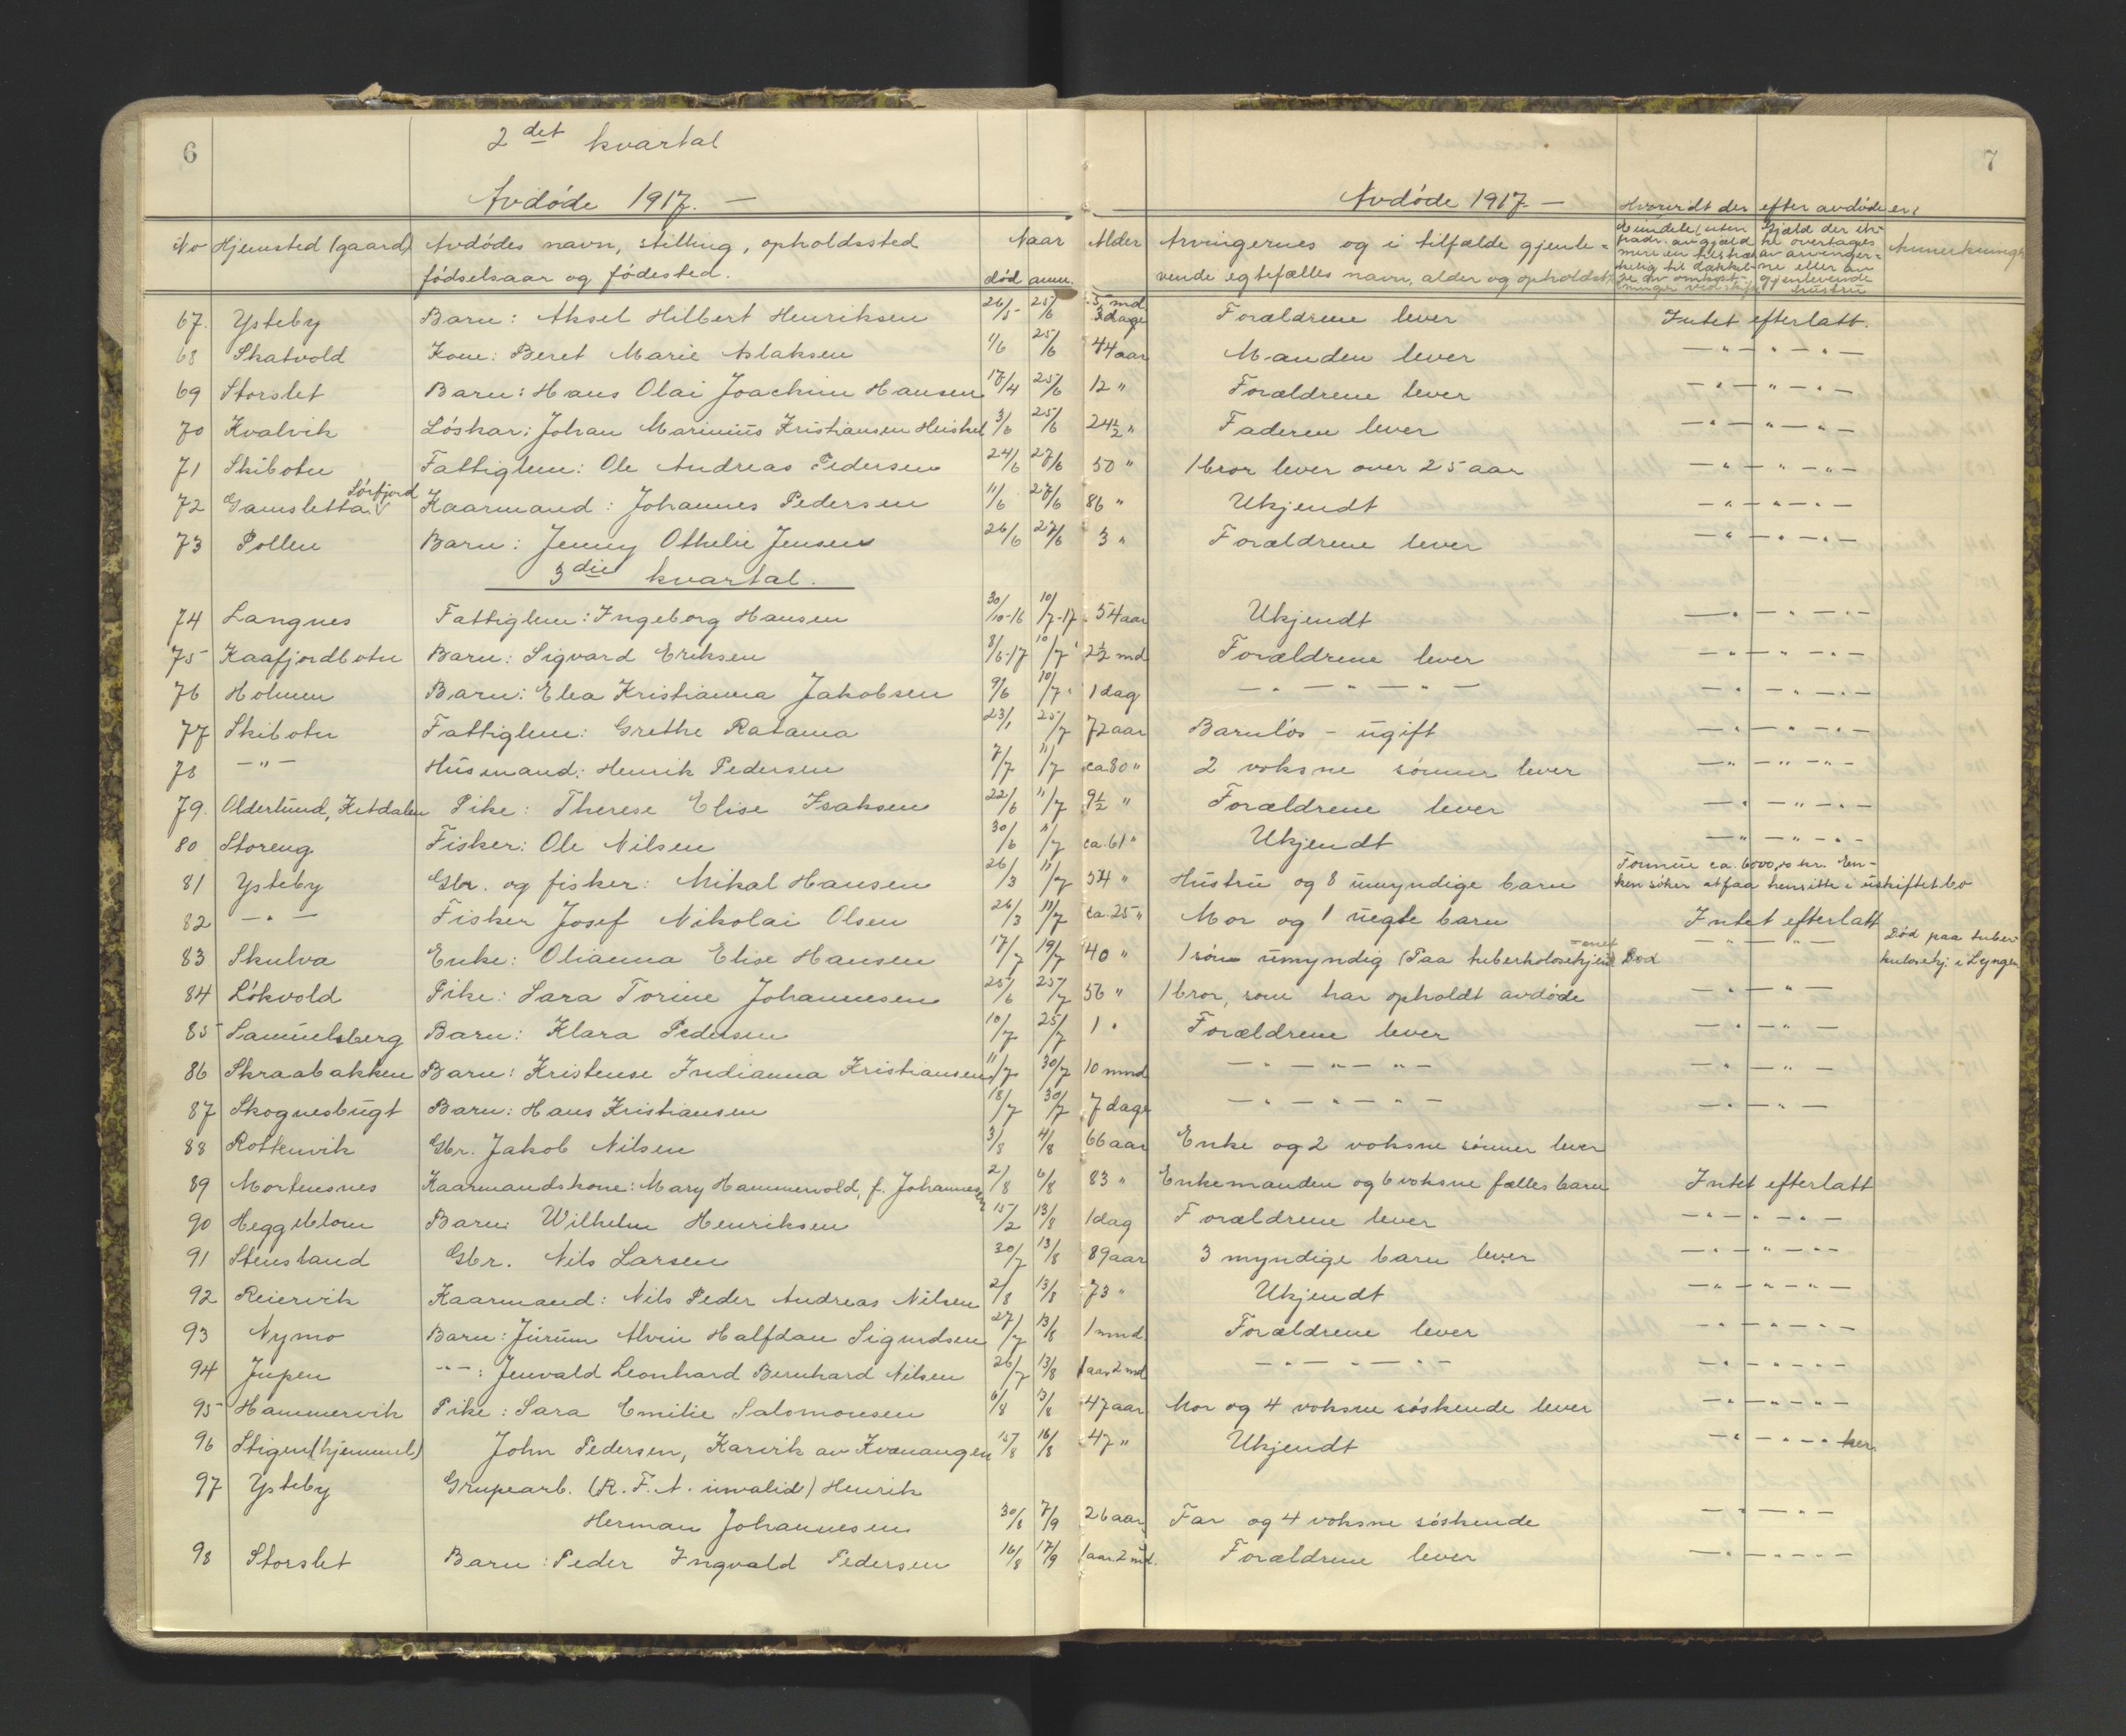 6
2det kvartal
Avdøde 1917. —
No Hjemsted (gaard) Avdødes navn, stilling, opholdssted Naar
fødselsaar og fødested. død anm.
67. Ysteby Barn: Aksel Hilbert Henriksen 26/5 25/6
68 Skatvold Kone: Beret Marie Aslaksen 1/6 25/6
69 Storslet Barn: Hans Olai Joachim Hansen 18/4 25/6
70 Kvalvik Løskar: Johan Marinius Kristiansen Heiskel 3/6 25/6
71 Skibotn Fattiglem: Ole Andreas Pedersen 24/6 27/6
72 Gamsletta Sørfjord Kaarmand: Johannes Pedersen 11/6 27/6
73 Pollen Barn: Jenny Othelie Jensen 26/6 27/6
3die kvartal.
74 Langnes Fattiglem: Ingeborg Hansen 30/10-16 10/7-17
75 Kaafjordbotn Barn: Sigvard Eriksen 8/6-17 10/7
76 Holmen Barn: Elea Kristianna Jakobsen 9/6 10/7
77 Skibotn Fattiglem: Grethe Ratama 23/1 25/7
78 — " — Husmand: Henrik Pedersen 7/7 11/7
79. Olderlund, Kitdalen Pike: Therese Elise Isaksen 22/6 11/7
80 Storeng Fisker: Ole Nilsen 30/6 11/7
81 Ysteby Gbr. og fisker: Mikal Hansen 26/3 11/7
82 — " — Fisker Josef Nikolai Olsen 26/3 11/7
83 Skulva Enke: Olianna Elise Hansen 17/7 19/7
84 Løkvold Pike: Sara Torine Johannesen 25/6 25/7
85 Samuelsberg Barn: Klara Pedersen 10/7 25/7
86 Skraabakken Barn: Kristense Indianna Kristiansen 11/7 30/7
87 Skognesbugt Barn: Hans Kristiansen 18/7 30/7
88 Rottenvik Gbr. Jakob Nilsen 3/8 4/8
89 Mortensnes Kaarmandskone: Mary Hammervold, f. Johannesen 2/8 6/8
90 Heggeblom Barn: Wilhelm Henriksen 15/2 13/8
91 Stensland Gbr. Nils Larsen 30/7 13/8
92 Reiervik Kaarmand: Nils Peder Andreas Nilsen 2/8 13/8
93 Nymo Barn: Jurum Alvin Halfdan Sigurdsen 27/7 13/8
94 Jupen — " —: Jenvald Leonhard Bernhard Nilsen 26/7 13/8
95 Hammervik Pike: Sara Emilie Salomonsen 6/8 13/8
96 Stigen (hjemmel) John Pedersen, Karvik av Kvænangen 15/8 16/8
97 Ysteby Grupearb. (R.F.A. invalid) Henrik
Herman Johannesen 30/8 7/9
98 Storslet Barn: Peder Ingvald Pedersen 16/8 17/9
7
Avdøde 1917 —
Hvorvidt der efter avdøde er:
Alder Arvingernes og i tilfælde gjenle- Anmerkninger
vende egtefælles navn, alder og opholdsst.
5 md 3 dage Forældrene lever Intet efterlatt.
44 aar Manden lever — " — " — " —
12 " Forældrene lever — " — " — " —
24½ " Faderen lever — " — " — " —
50 " 1 bror lever over 25 aar — " — " — " —
86 " Ukjendt — " — " — " —
3 " Forældrene lever — " — " — " —
54 aar Ukjendt — " — " — " —
2½ md Forældrene lever — " — " — " —
1 dag — " — " — " — — " — " — " —
72 aar Barnløs - ugift — " — " — " —
ca. 80 " 2 voksne sønner lever — " — " — " —
9½ " Forældrene lever — " — " — " —
ca. 61 " Ukjendt — " — " — " —
Formue ca. 6000,00 kr. En-
54 " Hustru og 8 umyndige barn ken søker at faa hensitte i uskiftet bo
ca. 25 " Mor og 1 uegte barn Intet efterlatt
40 " 1 søn umyndig (Paa tuberkolosehjemmet Død — " — " — Død paa tuber-
kulosehj. i Lyngen
56 " 1 bror, som har opholdt avdøde — " — " —
1 " Forældrene lever — " — " —
10 mnd — " — " — " — — " — " —
7 dage — " — " — " — — " — " —
66 aar Enke og 2 voksne sønner lever
83 " Enkemanden og 6 voksne fælles barn Intet efterlatt
1 dag Forældrene lever — " — " — " —
89 aar 3 myndige barn lever — " — " — " —
73 " Ukjendt — " — " — " —
1 mnd Forældrene lever — " — " — " —
1 aar 2 md — " — " — " — — " — " — " —
47 aar Mor og 4 voksne søskende lever — " — " — " —
47 " Ukjendt — " — " — "
26 aar Far og 4 voksne søskende — " — " —
1 aar 2 md. Forældrene lever — " — " — " —